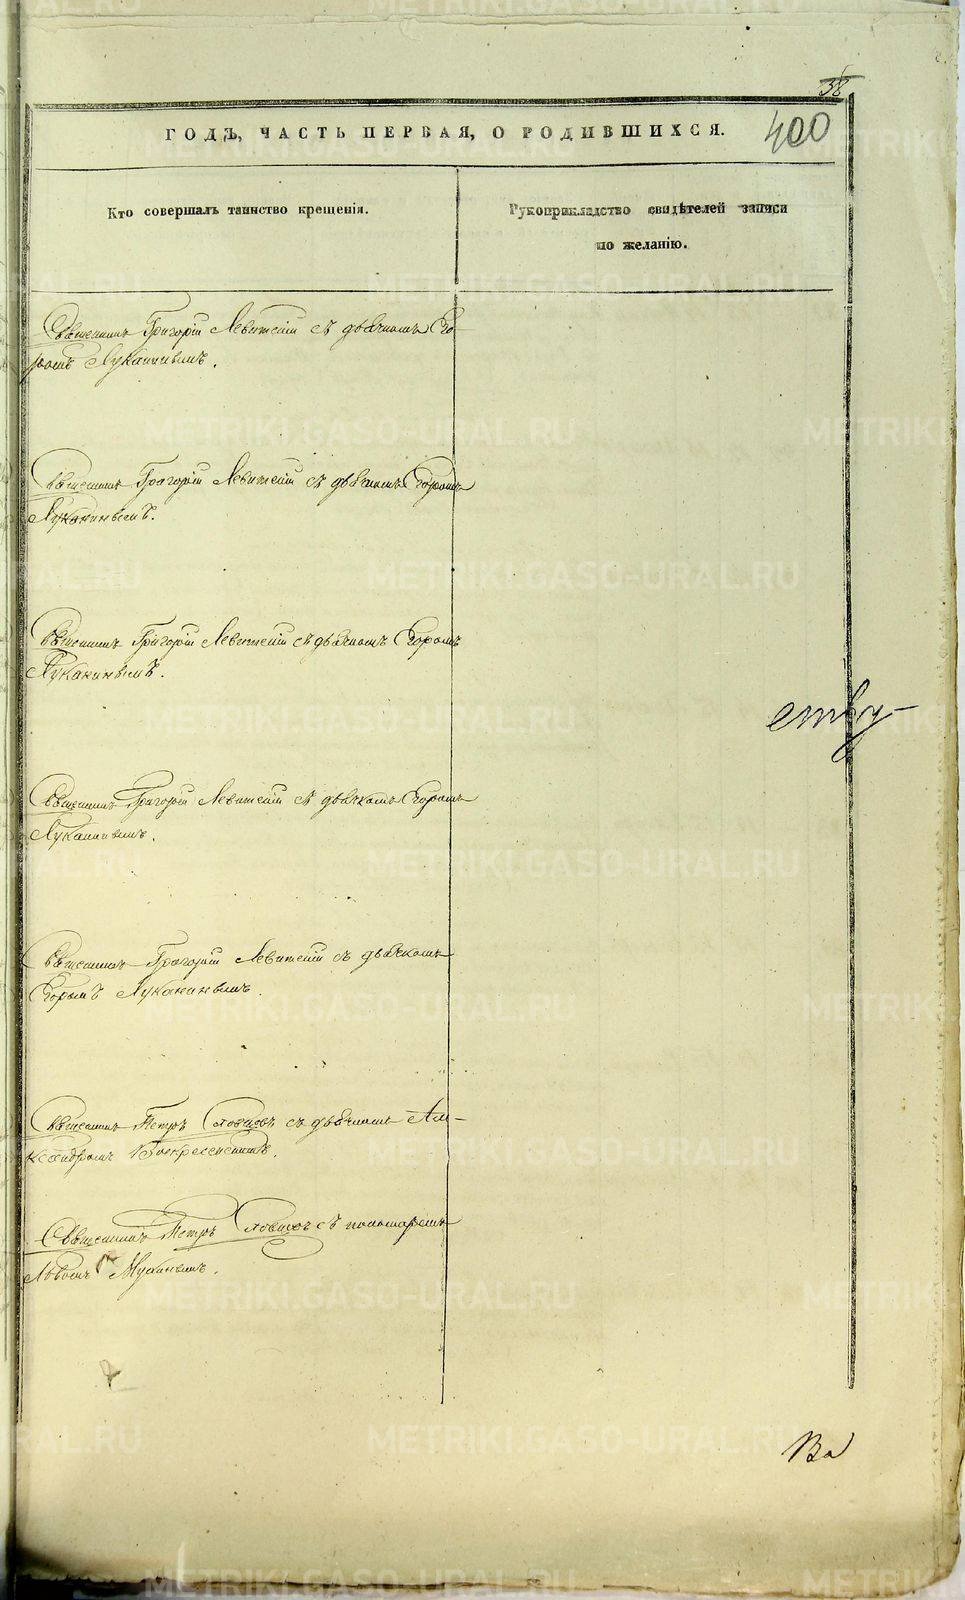 38
400
ГОДЪ, ЧАСТЬ ПЕРВАЯ, О РОДИВШИХСЯ.
Кто совершалъ таинство крещенія.
Рукоприкладство свидѣтелей записи
по желанію.
Григорій Левитскій съ дьячкомъ Его-
ромъ Луканинымъ.
Григорій Левитскій съ дьячкомъ Егоромъ
Луканинымъ.
Григорій Левитскій съ дьячкомъ Егоромъ
Луканинымъ.
Григорій Левитскій съ дьячкомъ Егоромъ
Луканинымъ.
Григорій Левитскій съ дьячкомъ
Егоромъ Луканинымъ.
Петръ Словцовъ съ дьячкомъ Але-
ксандромъ Воскресенскимъ.
Петръ Словцовъ съ пономаремъ
Львомъ
ству-
METRIKI.GASO-URAL.RU